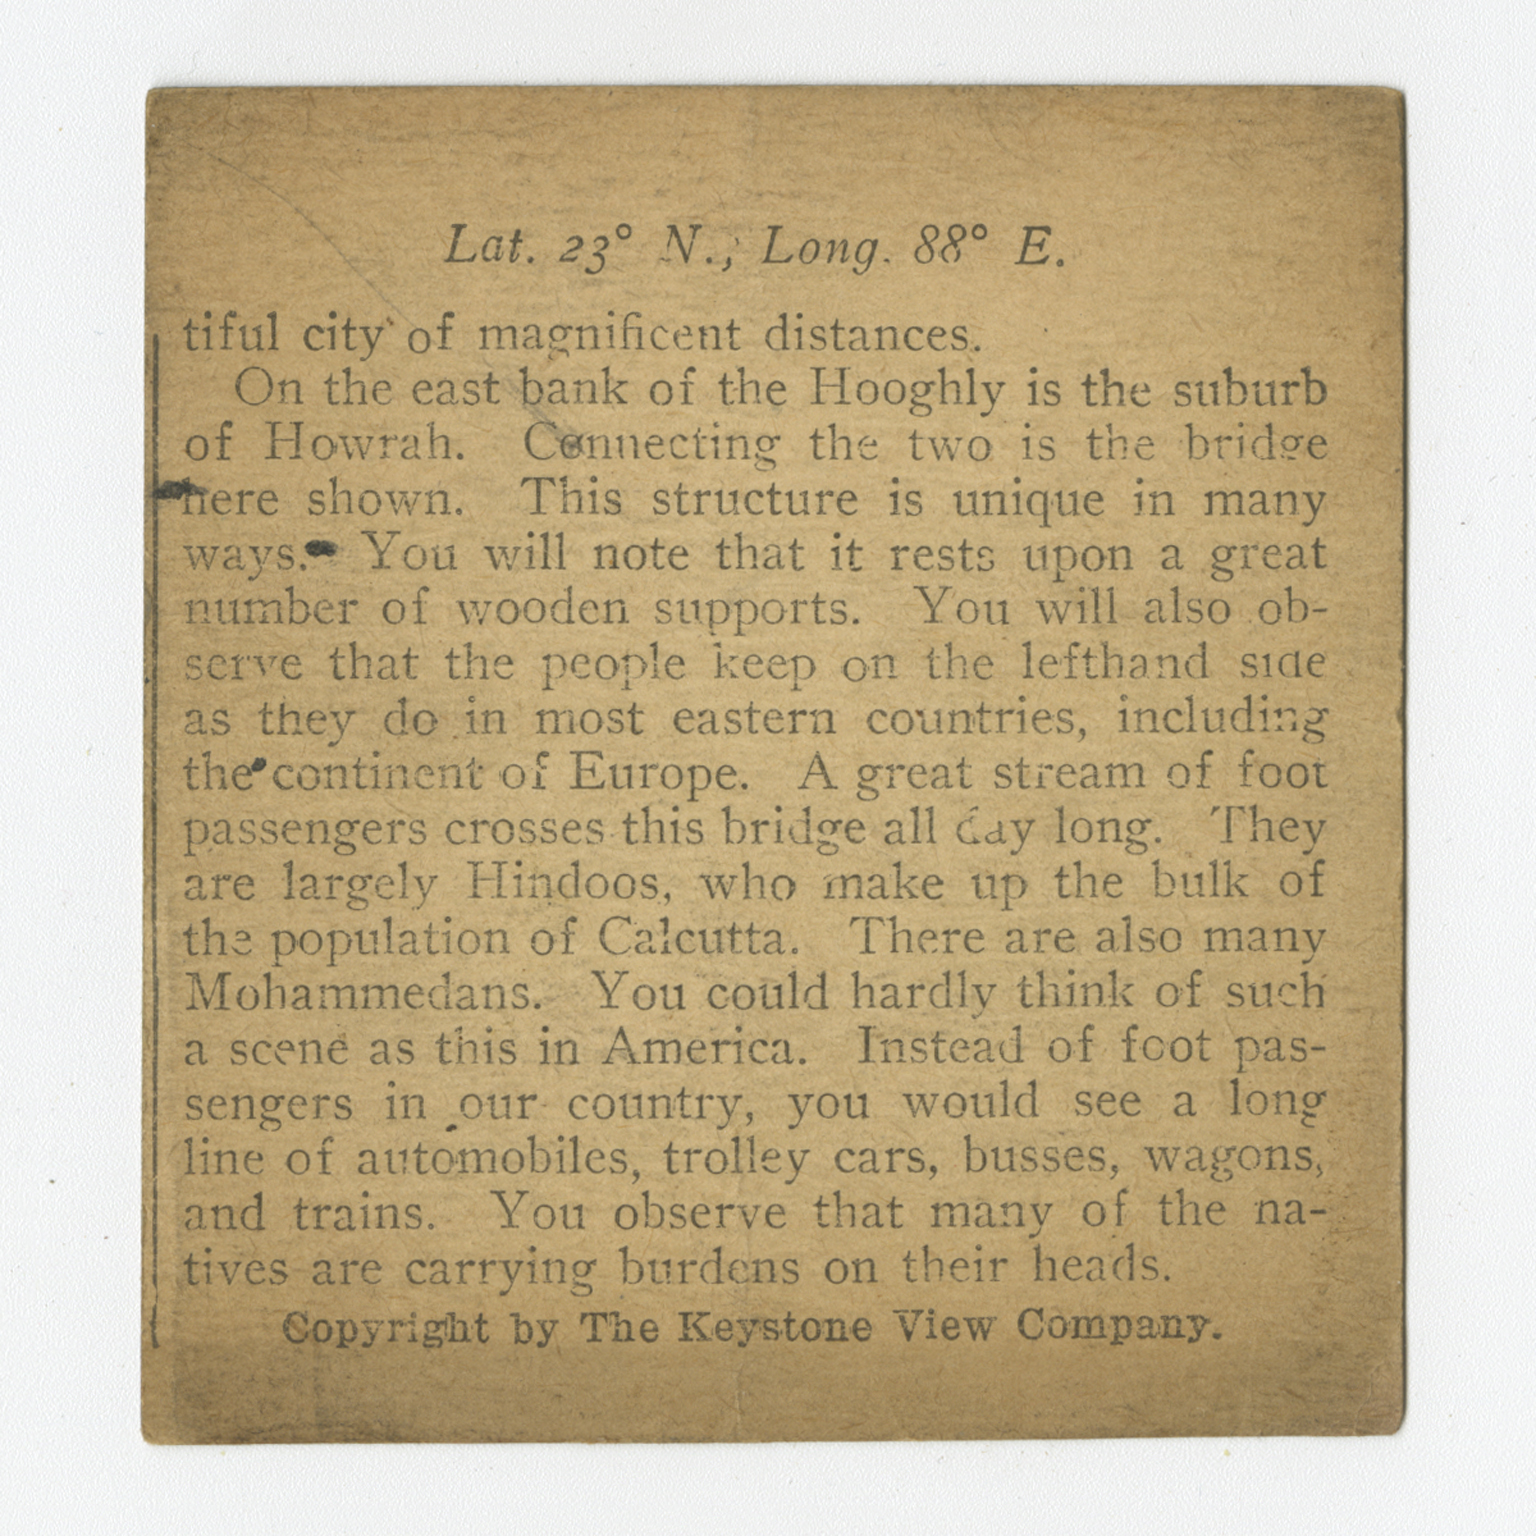 Lat. 23° N.; Long. 88° E.
tiful city of magnificent distances.
On the east bank of the Hooghly is the suburb
of Howrah. Connecting the two is the bridge
here shown. This structure is unique in many
ways. You will note that it rests upon a great
number of wooden supports. You will also ob-
serve that the people keep on the lefthand side
as they do in most eastern countries, including
the continent of Europe. A great stream of foot
passengers crosses this bridge all day long. They
are largely Hindoos, who make up the bulk of
the population of Calcutta. There are also many
Mohammedans. You could hardly think of such
a scene as this in America. Instead of foot pas-
sengers in our country, you would see a long
line of automobiles, trolley cars, busses, wagons,
and trains. You observe that many of the na-
tives are carrying burdens on their heads.
Copyright by The Keystone View Company.